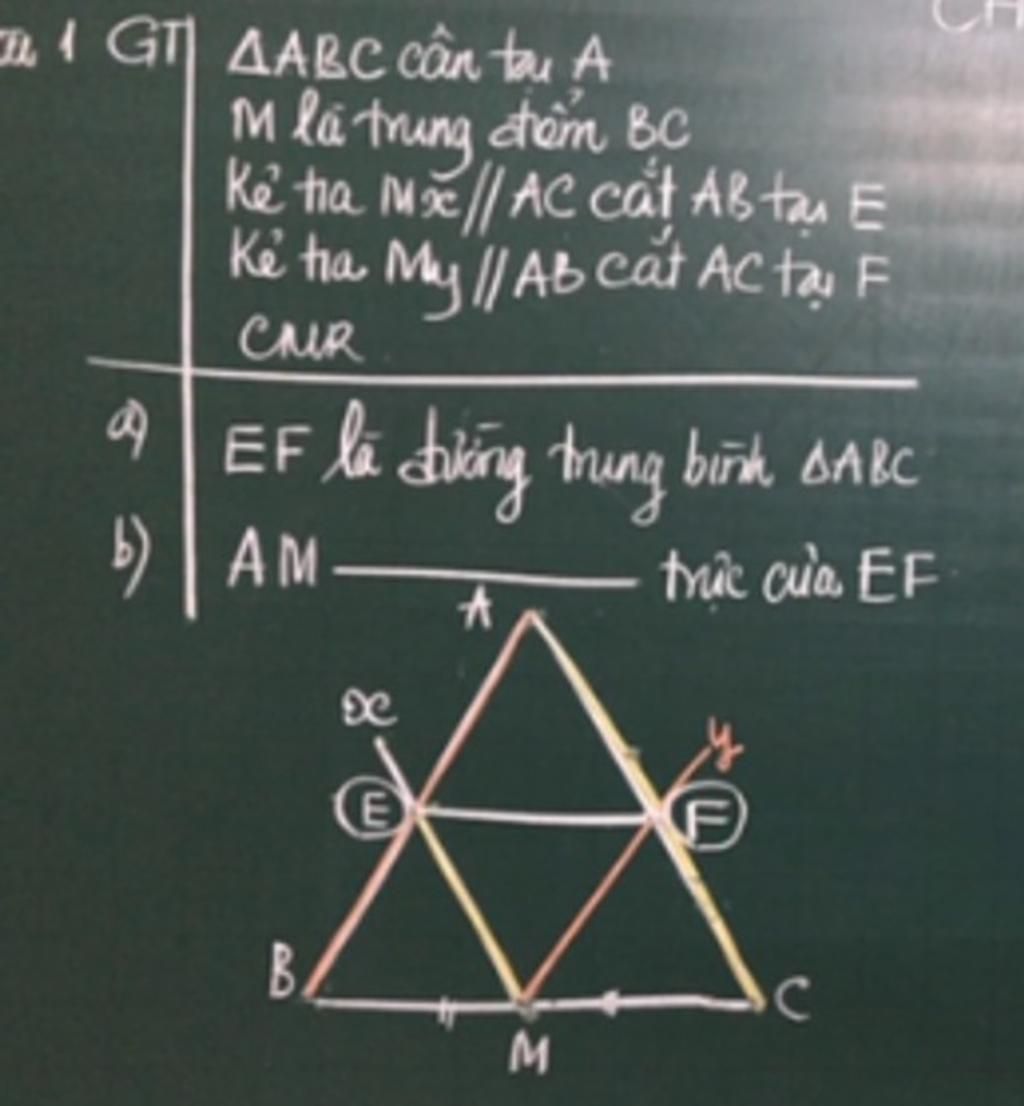 1 GT
ΔABC cân tại A
M là trung điểm BC
Kẻ tia Mx // AC cắt AB tại E
Kẻ tia My // AB cắt AC tại F
CMR
a) EF là đường trung bình ΔABC
b) AM ——— trực của EF
A
x
y
E
F
B
C
M